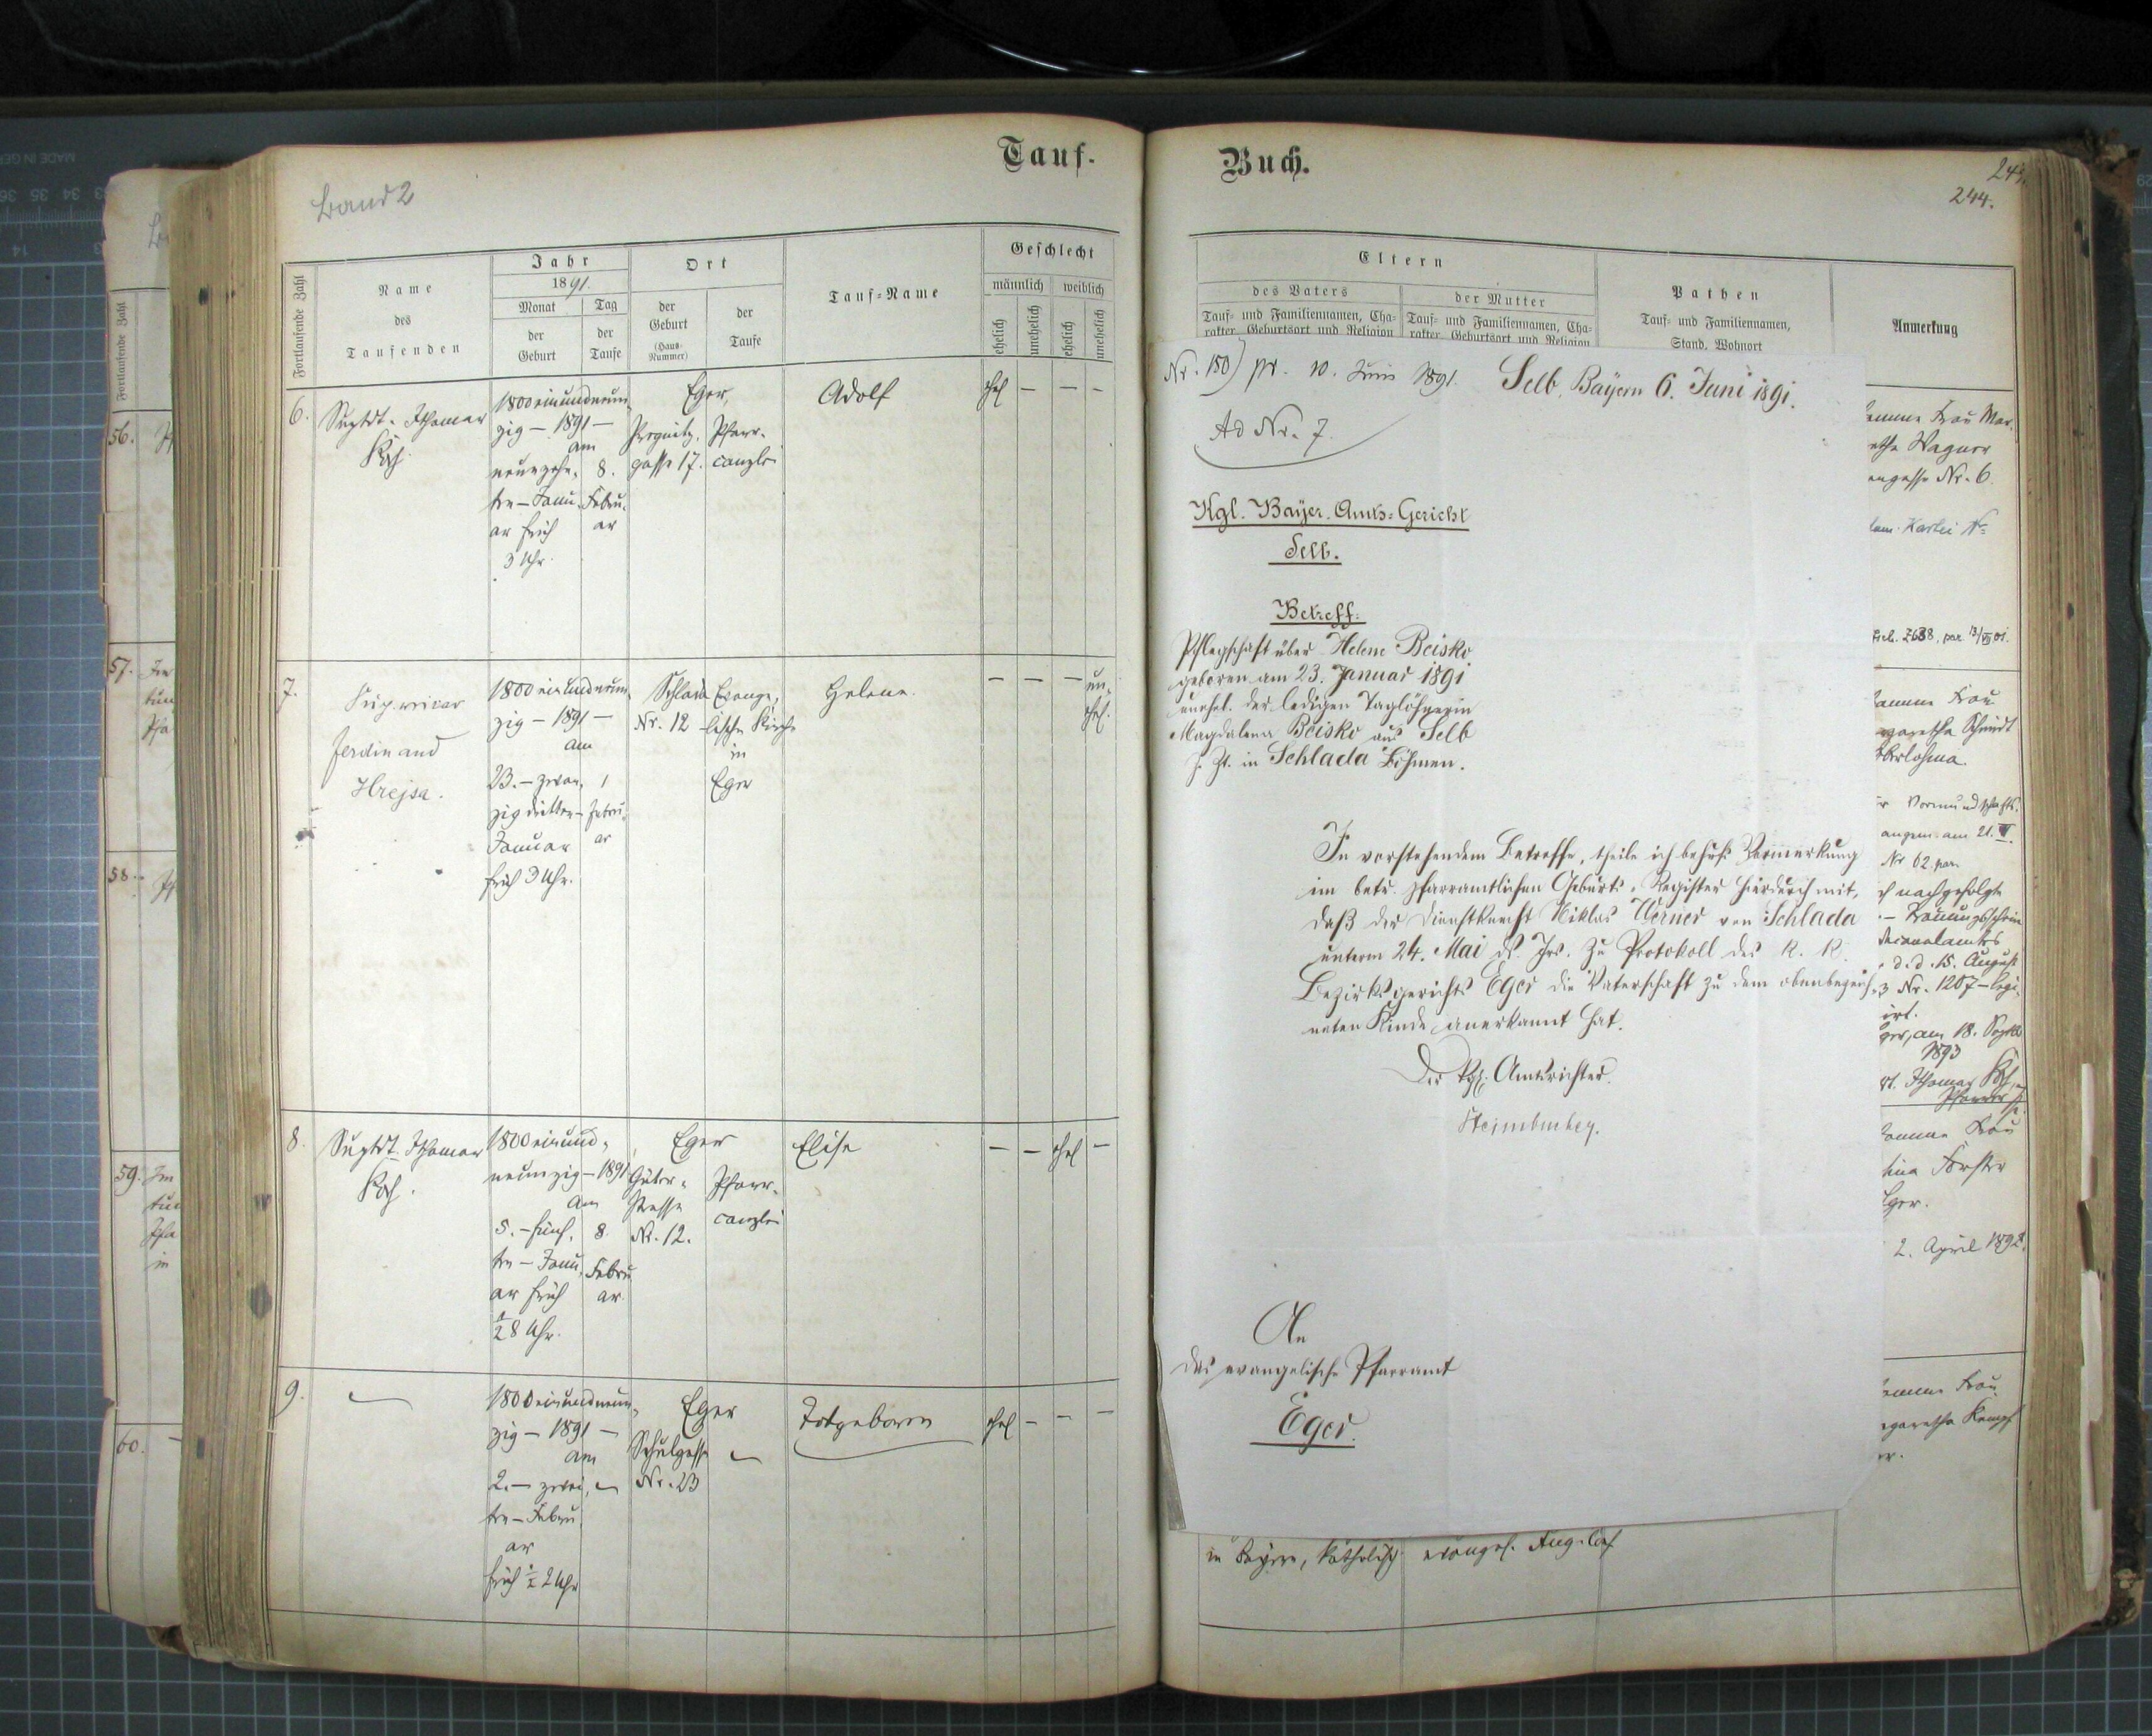 Tauf-
Band 2
Fortlaufende Zahl
Name
des
Taufenden
Jahr
1891.
Monat
der
Geburt
Tag
der
Taufe
Ort
der
Geburt
(Haus-
Nummer)
der
Taufe
Tauf-Name
Geschlecht
männlich
weiblich
ehelich
unehelich
ehelich
unehelich
6.
Suptdt. Ithamar
Koch.
1800 einundneun-
zig - 1891 -
am
neunzehn-
ten - Janu-
ar früh
3 Uhr.
8.
Febru-
ar
Eger,
gasse 17.
Pfarr-
canzlei
Adolf
ehel
—
—
—
7.
Ferdinand
Hrejsa.
1800 einundneun-
zig - 1891 -
am
23. - zwan-
zig dritten -
Januar
früh 3 Uhr.
1
Febru-
ar
Schlada
Nr. 12
Evange-
lische Kirche
in
Eger
Helene.
—
—
—
un-
ehel.
8.
Suptdt. Ithamar
Koch.
1800 einund-
neunzig - 1891
am
5. - fünf-
ten - Janu-
ar früh
½ 8 Uhr.
8.
Febru
ar.
Eger
Güter-
Strasse
Nr. 12.
Pfarr-
canzlei
Elise
—
—
ehel
—
9.
1800 einundneun-
zig - 1891 -
am
2. - zwei-
ten - Febru
ar
früh ½ 2 Uhr
Eger
Schulgasse
Nr. 23
Totgeboren
ehel
—
—
—
Fortlaufende Zahl
56.
57.
58.
59.
60.
Buch.
244.
Eltern
des Vaters
Tauf- und Familiennamen, Cha-
rakter, Geburtsort und Religion
der Mutter
Tauf- und Familiennamen, Cha-
rakter, Geburtsort und Religion
Pathen
Tauf- und Familiennamen,
Stand, Wohnort
Anmerkung
Nr. 150) pr. 10. Juni 1891.
Selb, Bayern 6. Juni 1891.
Ad Nr. 7.
Kgl. Bayer. Amts-Gericht
Selb.
Betreff:
Pflegschaft über Helene Beisko
geboren am 23. Januar 1891
unehel. der ledigen Taglöhnerin
Magdalena Beisko aus Selb
z. Zt. in Schlada Böhmen.
In vorstehendem Betreffe, theile ich behufs Vormerkung
im betr. pfarramtlichen Geburts-Register hierdurch mit,
daß der Dienstknecht Niklas Werner von Schlada
unterm 24. Mai ds. Jrs. zu Protokoll des K. K.
Bezirksgerichts Eger die Vaterschaft zu dem obenbezeich-
neten Kinde anerkannt hat.
Der kgl. Amtsrichter.
An
das evangelische Pfarramt
Eger.
amme Frau Mar.
etha Wagner
engasse Nr. 6.
Frau
garetha Schmidt
Oberlohma.
Vormundschafts.
angen. am 21. VI.
Nr 62 par.
nachgefolgte
- Trauungsschein
Decanalamtes
d. d. 15. August
3 Nr. 1207 - legi-
irt.
ger, am 18. Septbr
1893
dt. Ithamar Koch
Pfarrer
Frau
tina Forster
Eger.
2. April 1892.
amme Frau
garetha Kempf
er.
in Bayern, katholisch
evangel. Augs. Conf